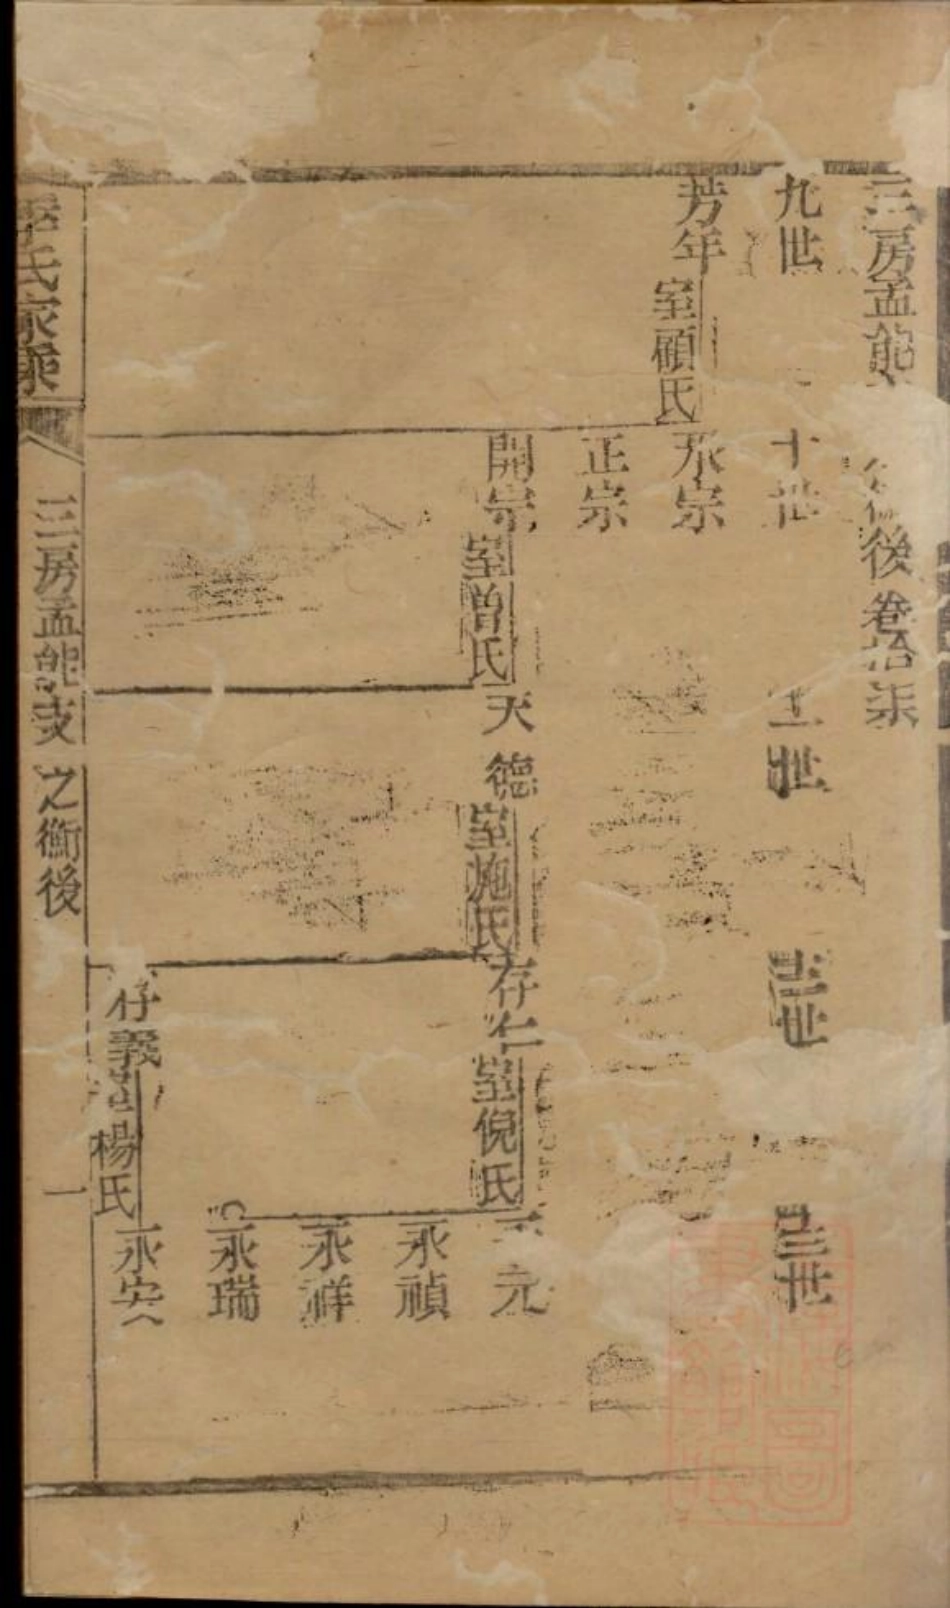 三房孟能 後卷拾柒
九世 十世 十一世 十二世 十三世
芳年 室顧氏 永宗
正宗
開宗 室曾氏 天德 室施氏 存仁 室倪氏 元
永禎
永祥
永瑞
存義 室楊氏 永安
李氏家乘 三房孟能支 之衡後 一